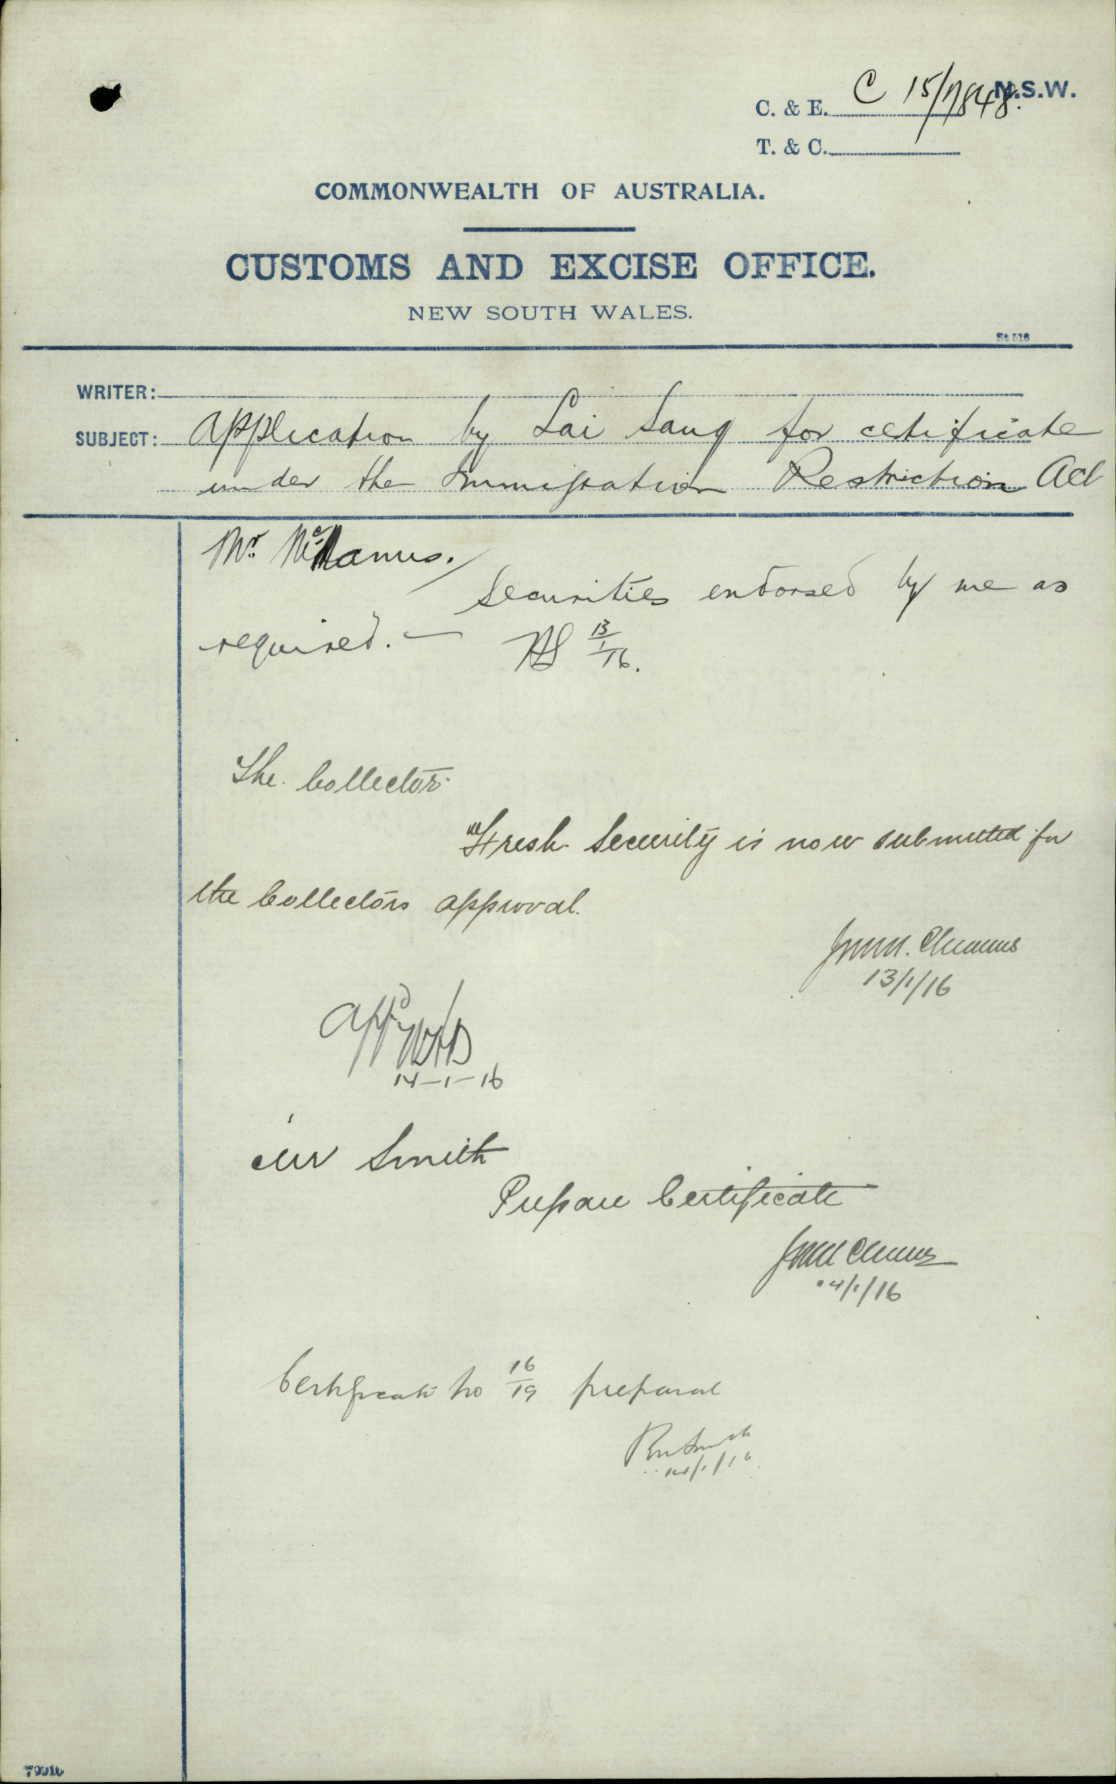 C. & E. C 15/17848. N.S.W.
T. & C.
COMMONWEALTH OF AUSTRALIA.
CUSTOMS AND EXCISE OFFICE.
NEW SOUTH WALES.
WRITER:
SUBJECT: Application by Lai Sang for certificate
under the Immigration Restriction Act
Mr. McManus.
Securities endorsed by me as
required. —
13/1/16.
The Collector.
Fresh Security is now submitted for
the Collectors approval.
13/1/16
Appd
14-1-16
Mr Smith
Prepare Certificate
14/1/16
Certificate No 16/19 prepared
14/1/16